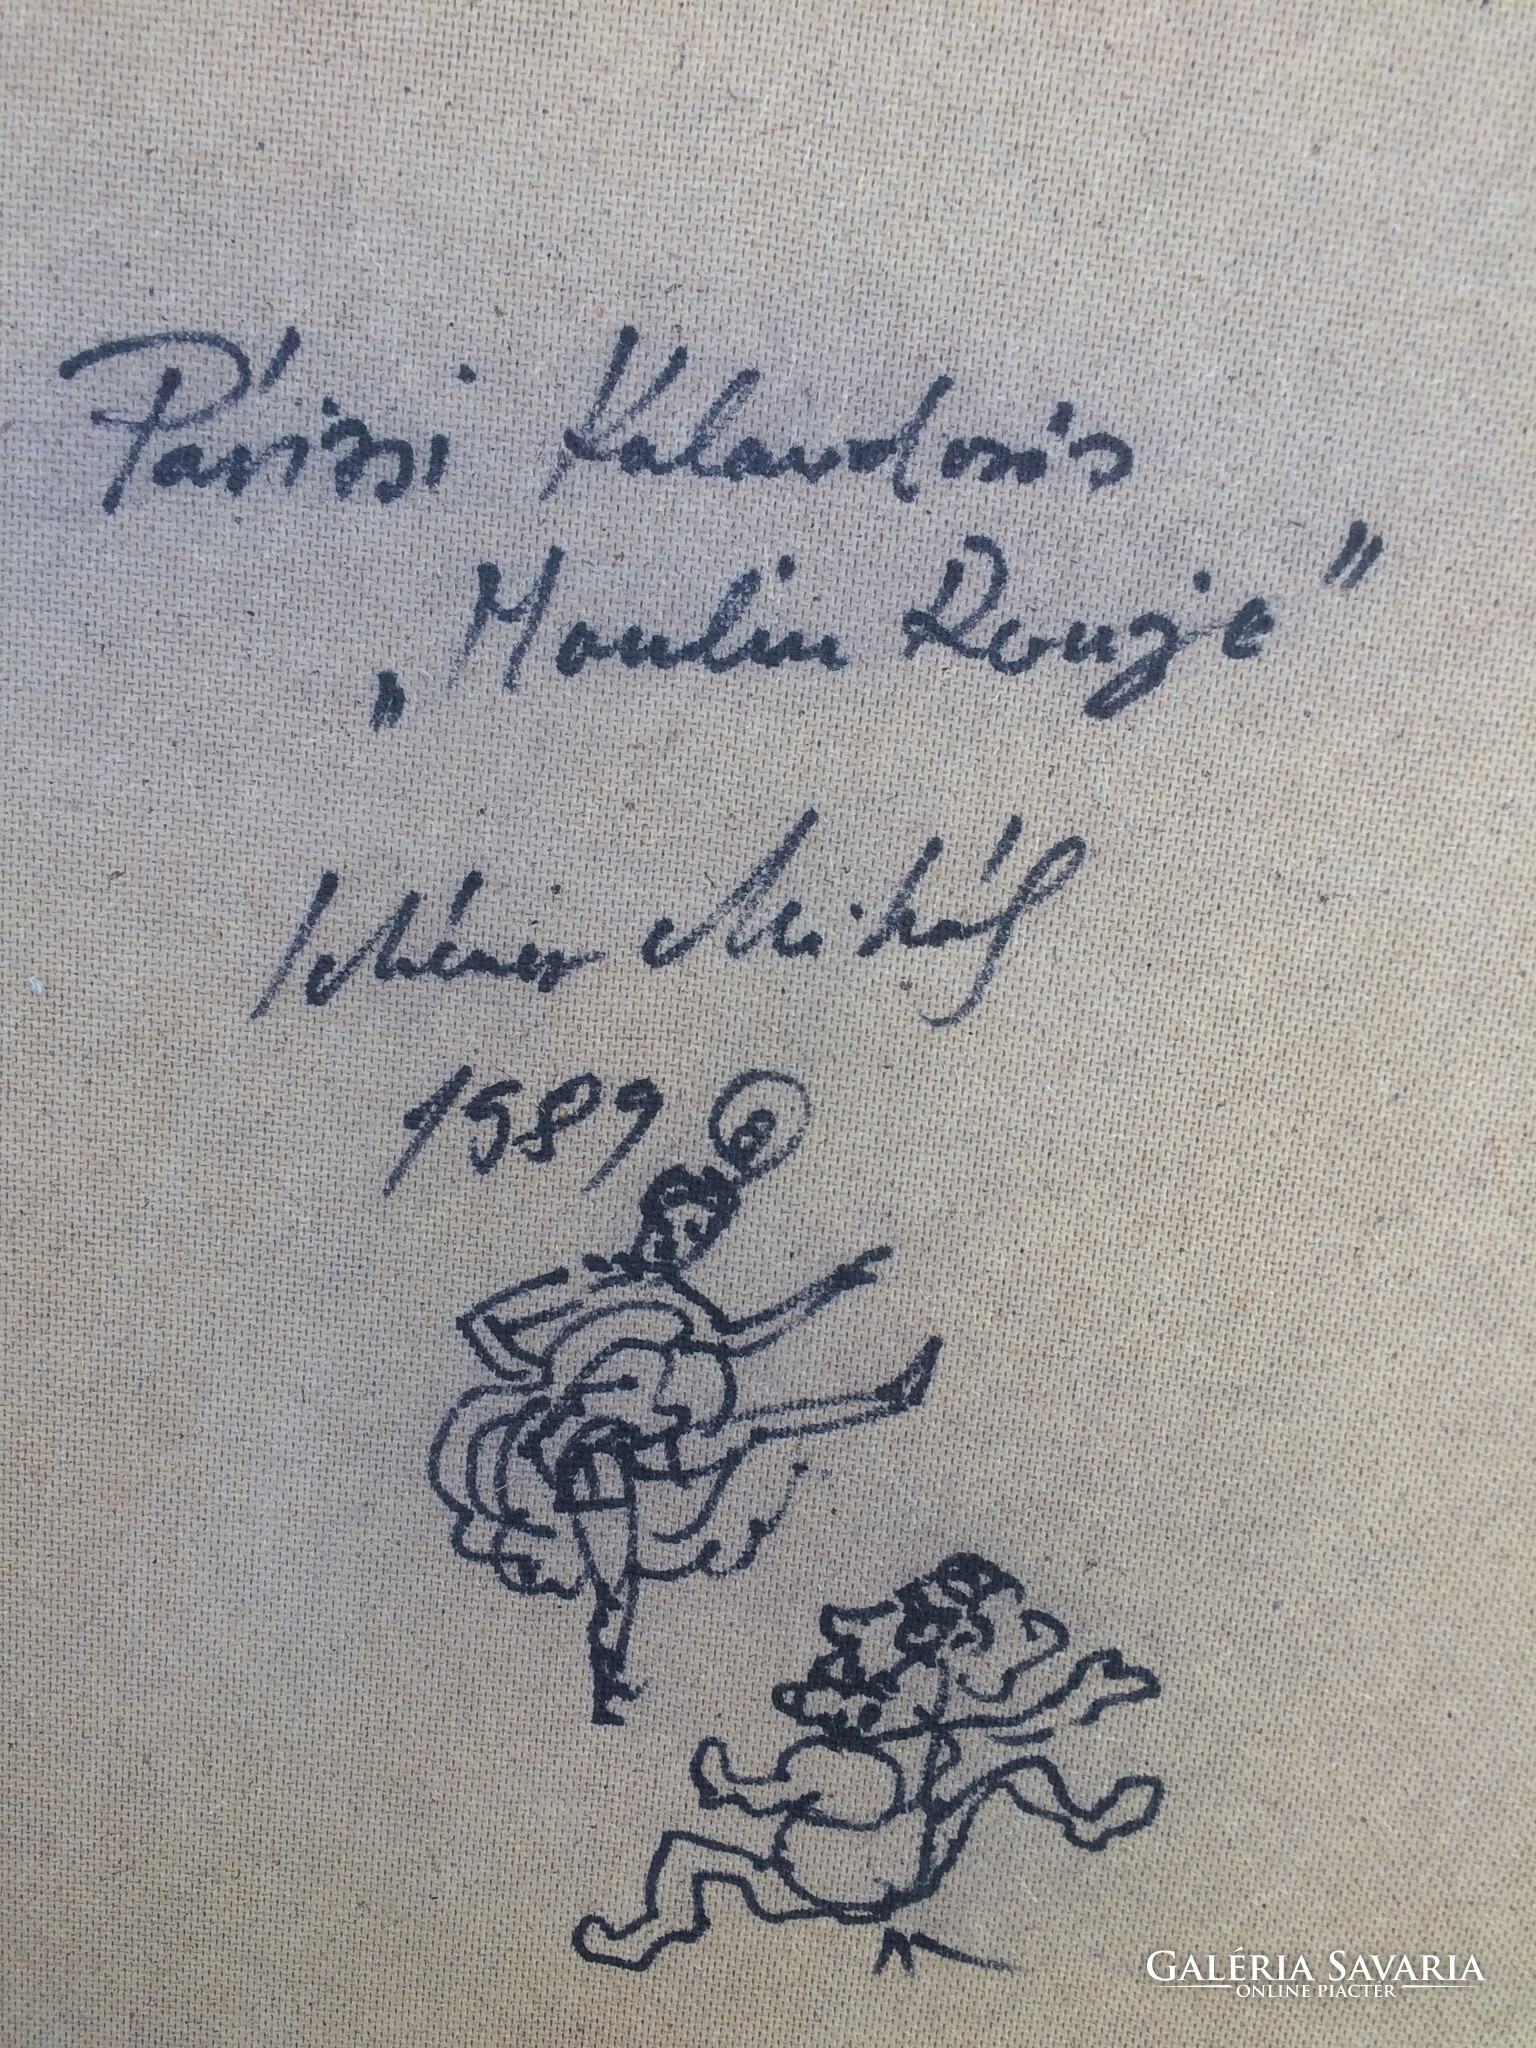 Párizsi Kalandozás
„Moulin Rouge”
Schéner Mihály
1989
GALÉRIA SAVARIA
ONLINE PIACTÉR